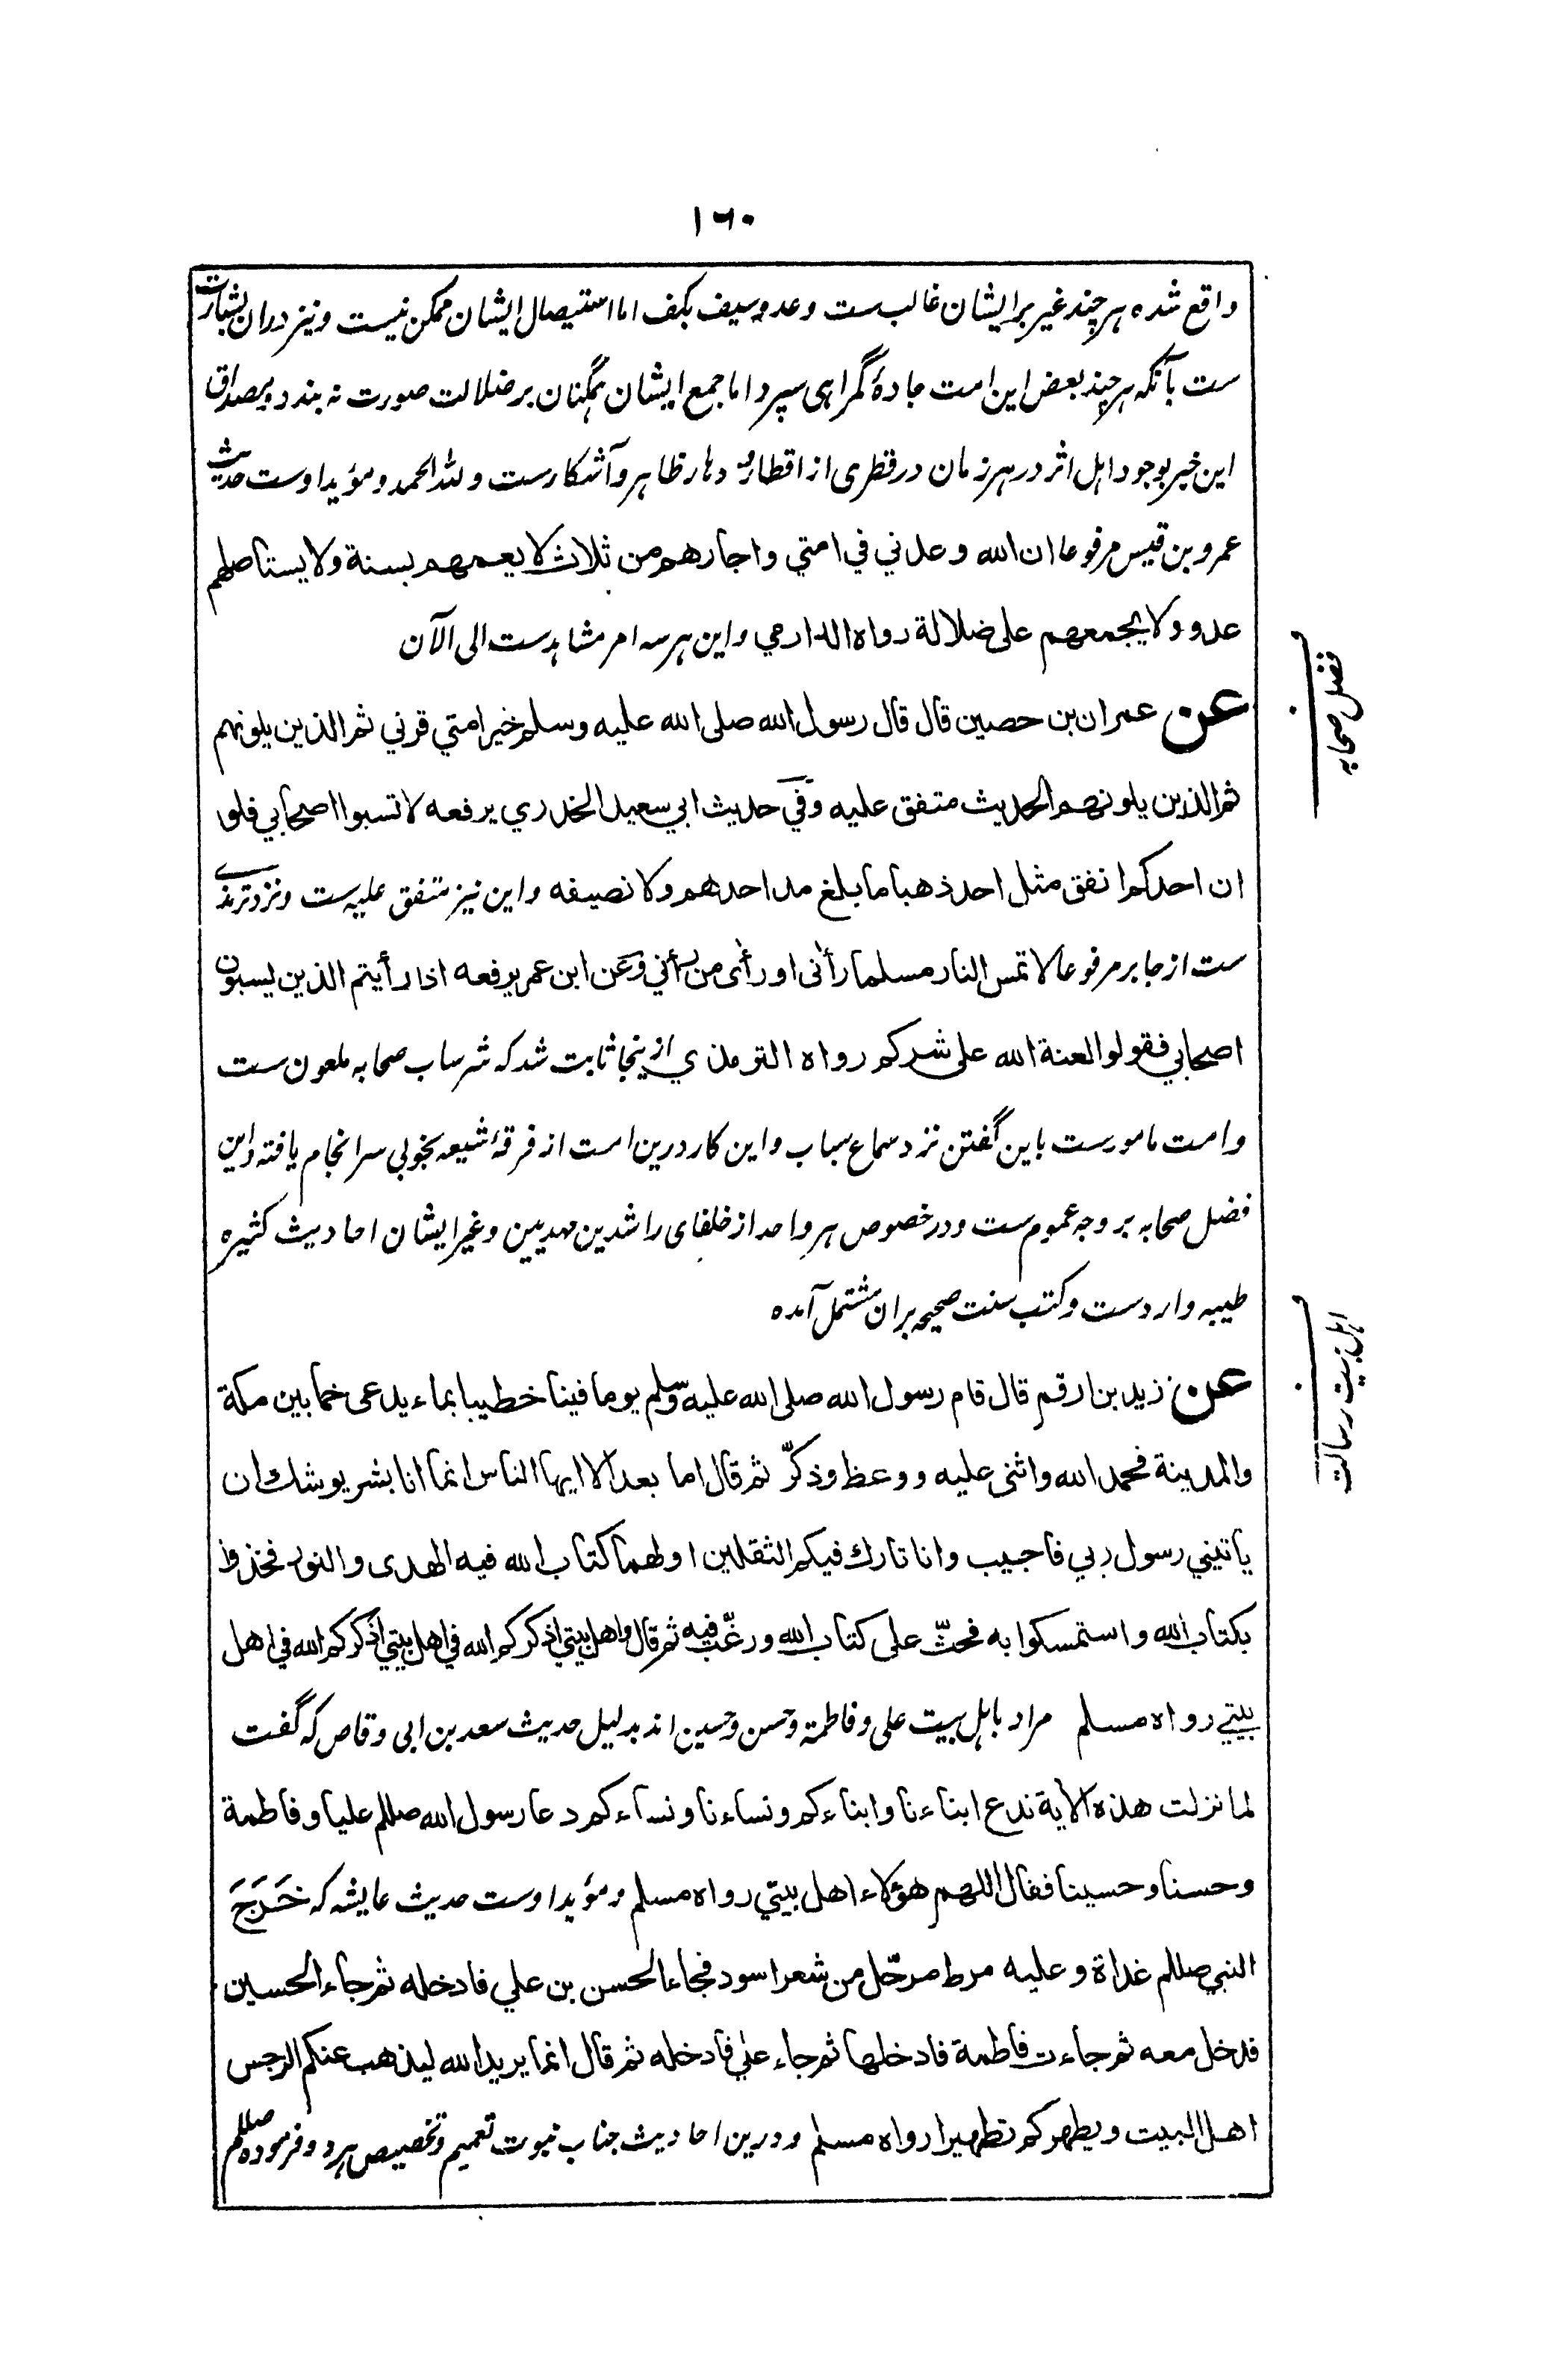 ۱۶۰
واقع شده هر چند غیر بر ایشان غالب ست وعدو سیف بکف اما استیصال ایشان ممکن نیست ونیز دران بشارت
ست بآنکه هر چند بعض این امت جادۀ گمراهی سپرد اما جمع ایشان همگنان بر ضلالت صورت نه بندد ومصداق
این خبر بوجود اهل اثر در هر زمان در قطری از اقطار ودیار ظاهر وآشکارست ولله الحمد ومؤید اوست حدیث
عمرو بن قیس مرفوعا ان الله وعدني في امتي واجارهم من ثلاث لا يعمهم بسنة ولا يستاصلهم
عدو ولا يجمعهم على ضلالة رواه الدارمي واین هر سه امر مشاهدست الی الآن
فضل صحابه
عن عمران بن حصين قال قال رسول الله صلى الله عليه وسلم خير امتي قرني ثم الذين يلونهم
ثم الذين يلونهم الحديث متفق عليه وفي حديث ابي سعيد الخدري يرفعه لا تسبوا اصحابي فلو
ان احدكم انفق مثل احد ذهبا ما بلغ مد احدهم ولا نصيفه واین نیز متفق علیه ست ونزد ترمذی
ست از جابر مرفوعا لا تمس النار مسلما رآني او رأى من رآني وعن ابن عمر يرفعه اذا رأيتم الذين يسبون
اصحابي فقولوا لعنة الله على شركم رواه الترمذي ازینجا ثابت شد که شر ساب صحابه ملعون ست
وامت مامورست باین گفتن نزد سماع سباب واین کار درین امت از فرقۀ شیعه بخوبی سرانجام یافته واین
فضل صحابه بر وجه عموم ست ودر خصوص هر واحد از خلفای راشدین مهدیین وغیر ایشان احادیث کثیره
طیبه واردست وکتب سنت صحیحه بران مشتمل آمده
اهل بیت رسالت
عن زيد بن ارقم قال قام رسول الله صلى الله عليه وسلم يوما فينا خطيبا بماء يدعى خما بين مكة
والمدينة فحمد الله واثنى عليه ووعظ وذكّر ثم قال اما بعد الا ايها الناس انما انا بشر يوشك ان
ياتيني رسول ربي فاجيب وانا تارك فيكم الثقلين اولهما كتاب الله فيه الهدى والنور فخذوا
بكتاب الله واستمسكوا به فحثّ على كتاب الله ورغّب فيه ثم قال واهل بيتي اذكركم الله في اهل بيتي اذكركم الله في اهل
بيتي رواه مسلم مراد باهل بیت علی وفاطمة وحسن وحسین اند بدلیل حدیث سعد بن ابی وقاص که گفت
لما نزلت هذه الآية ندع ابناءنا وابناءكم ونساءنا ونساءكم دعا رسول الله صللم عليا وفاطمة
وحسنا وحسينا فقال اللهم هؤلاء اهل بيتي رواه مسلم ومؤید اوست حدیث عایشه که خَرَجَ
النبي صللم غداة وعليه مرط مرحّل من شعر اسود فجاء الحسن بن علي فادخله ثم جاء الحسين
فدخل معه ثم جاءت فاطمة فادخلها ثم جاء علي فادخله ثم قال انما يريد الله ليذهب عنكم الرجس
اهل البيت ويطهركم تطهيرا رواه مسلم ودرین احادیث جناب نبوت تعمیم وتخصیص هر دو فرموده صللم